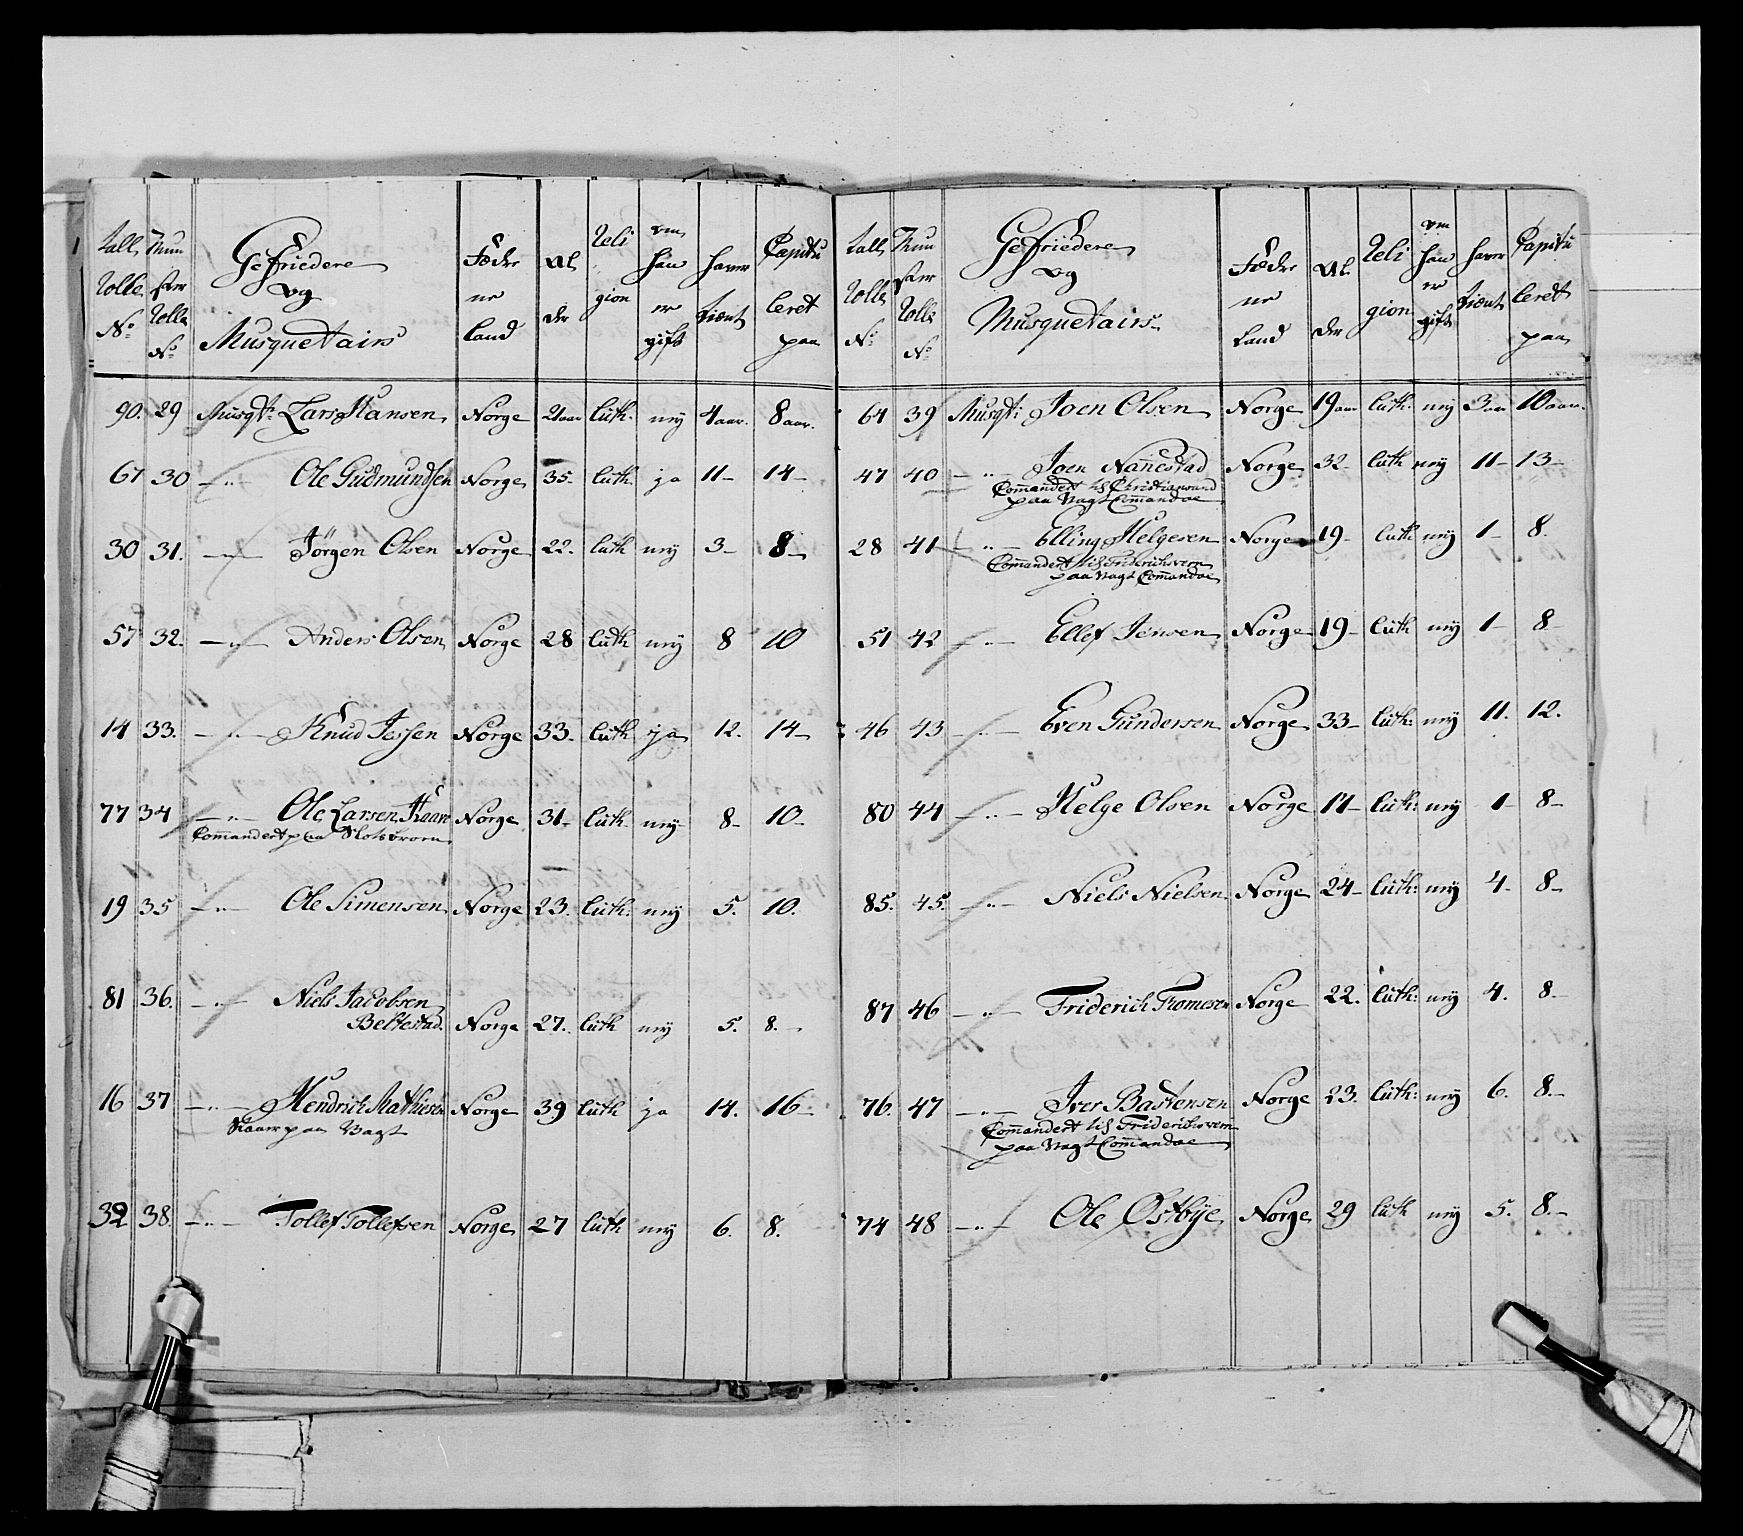 Gefriedere
og
Musquetairs
Födene Land
Alder
Religion
om han er gift
haver tient
Capituleret paa
90. 29 Musqt: Lars Hansen Norge 21 aar luth. nej 4 aar. 8 aar.
67 30 — " — Ole Gudmundsen Norge 35 luth. ja 11 — 14 —
30 31. — " — Jörgen Olsen Norge 22. luth nej 3 — 8 —
57 32. — " — Anders Olsen Norge 28 luth nej 8 10
14 33. — " — Knud Jessen Norge 33. luth ja 12. 14 —
77 34 — " — Ole Larsen Norge 31 — luth nej 8 — 10 —
Commandert paa
19 35 — " — Ole Simensen Norge 23. luth: nej 5. 10.
81 36. — " — Niels Jacobsen
Beltestad. Norge 27. luth nej 5. 8. —
16 37 — " — Hendrich Mathiesen Norge 39 luth ja 14. 16 —
paa Vagt
32 38. — " — Tollef Tollefsen Norge 27 luth nej 6. 8.
Gefriedere
og
Musquetairs
Födene Land
Alder
Religion
om han er gift
haver tient
Capituleret paa
64 39 Musqt: Joen Olsen Norge 19 aar luth. nej 3 aar 10 aar.
47 40 — " — Joen Nannestad Norge 32 — luth nej 11 — 13 —
Commandert til Christiansand
paa Vagt Commandoe
28 41 — " — Elling Helgesen Norge 19 — luth nej 1 — 8.
Commandert til Friderichsvern
paa Vagt Commandoe
51 42 — " — Ellef Jensen Norge 19 — luth nej 1 — 8 —
46 43 — " — Even Gundersen Norge 33 — luth: nej 11. 12.
80 44 — " — Helge Olsen Norge 17 — luth: nej 1 — 8 —
85. 45. — " — Niels Nielsen Norge 24 — luth: nej 4 — 8 —
87 46 — " — Friderich Tromesen Norge 22. luth: nej 4. 8. —
76. 47 — " — Iver Bastensen Norge 23. luth: nej 6. 8. —
Commandert til Friderichsvern
paa Vagt Commandoe
74 48 — " — Ole Ostbye Norge 29 luth nej 5. 8. —